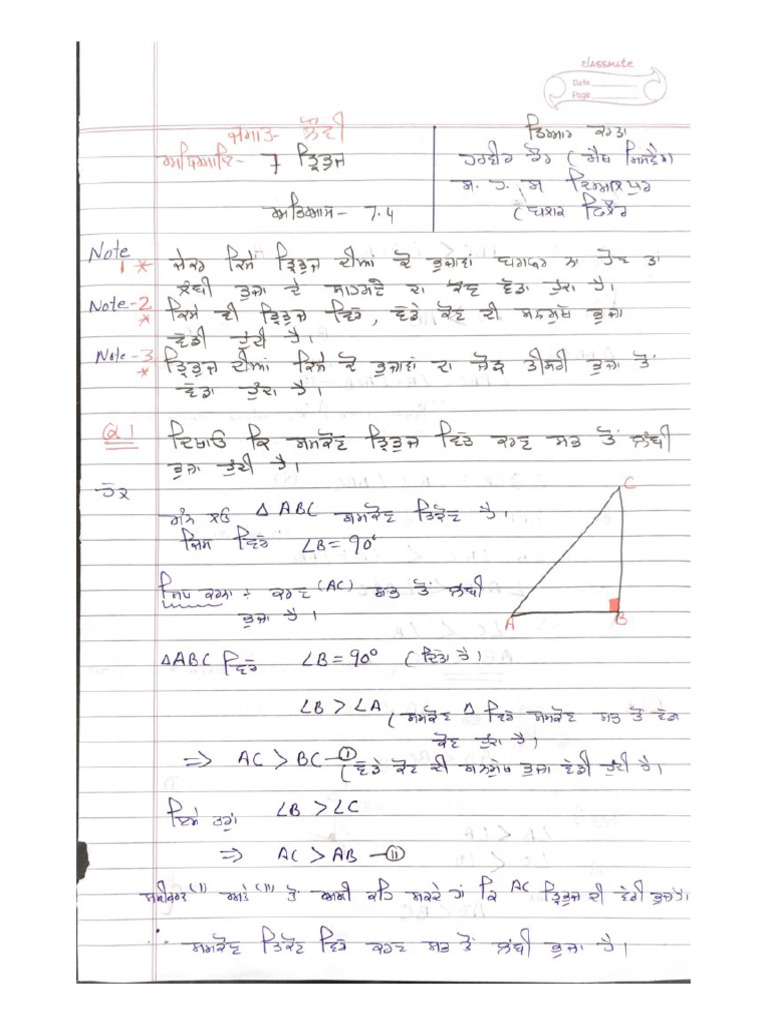 classmate
Date
Page
ਜਮਾਤ- ਨੌਵੀਂ
ਤਿਆਰ ਕਰਤਾ
ਅਧਿਆਇ- 7 ਤ੍ਰਿਭੁਜ
ਹਰਵੀਰ ਕੌਰ (ਮੈਥ ਮਿਸਟ੍ਰੈਸ)
ਸ. ਹ. ਸ
ਅਭਿਆਸ- 7.4
Note
1 * ਜੇਕਰ ਕਿਸੇ ਤ੍ਰਿਭੁਜ ਦੀਆਂ ਦੋ ਭੁਜਾਵਾਂ ਬਰਾਬਰ ਨਾ ਹੋਣ ਤਾਂ
ਲੰਬੀ ਭੁਜਾ ਦੇ ਸਾਹਮਣੇ ਦਾ ਕੋਣ ਵੱਡਾ ਹੁੰਦਾ ਹੈ।
Note-2 ਕਿਸੇ ਵੀ ਤ੍ਰਿਭੁਜ ਵਿੱਚ, ਵੱਡੇ ਕੋਣ ਦੀ ਸਨਮੁੱਖ ਭੁਜਾ
* ਵੱਡੀ ਹੁੰਦੀ ਹੈ।
Note-3 ਤ੍ਰਿਭੁਜ ਦੀਆਂ ਕਿਸੇ ਦੋ ਭੁਜਾਵਾਂ ਦਾ ਜੋੜ ਤੀਸਰੀ ਭੁਜਾ ਤੋਂ
* ਵੱਡਾ ਹੁੰਦਾ ਹੈ।
Q1 ਦਿਖਾਓ ਕਿ ਸਮਕੋਣ ਤ੍ਰਿਭੁਜ ਵਿੱਚ ਕਰਣ ਸਭ ਤੋਂ ਲੰਬੀ
ਭੁਜਾ ਹੁੰਦੀ ਹੈ।
ਹੱਲ
ਮੰਨ ਲਓ △ABC ਸਮਕੋਣ ਤਿਕੋਣ ਹੈ।
ਜਿਸ ਵਿੱਚ ∠B=90°
C
ਸਿੱਧ ਕਰਨਾ :- ਕਰਣ (AC) ਸਭ ਤੋਂ ਲੰਬੀ
ਭੁਜਾ ਹੈ।
A B
△ABC ਵਿੱਚ ∠B=90° (ਦਿੱਤਾ ਹੈ)
∠B > ∠A (ਸਮਕੋਣ △ ਵਿੱਚ ਸਮਕੋਣ ਸਭ ਤੋਂ ਵੱਡਾ
ਕੋਣ ਹੁੰਦਾ ਹੈ)
⇒ AC > BC —(i)
(ਵੱਡੇ ਕੋਣ ਦੀ ਸਨਮੁੱਖ ਭੁਜਾ ਵੱਡੀ ਹੁੰਦੀ ਹੈ।
ਇਸੇ ਤਰ੍ਹਾਂ ∠B > ∠C
⇒ AC > AB —(ii)
ਸਮੀਕਰਣ (i) ਅਤੇ (ii) ਤੋਂ ਅਸੀਂ ਕਹਿ ਸਕਦੇ ਹਾਂ ਕਿ AC ਤ੍ਰਿਭੁਜ ਦੀ ਵੱਡੀ ਭੁਜਾ ਹੈ।
∴ ਸਮਕੋਣ ਤਿਕੋਣ ਵਿੱਚ ਕਰਣ ਸਭ ਤੋਂ ਲੰਬੀ ਭੁਜਾ ਹੈ।